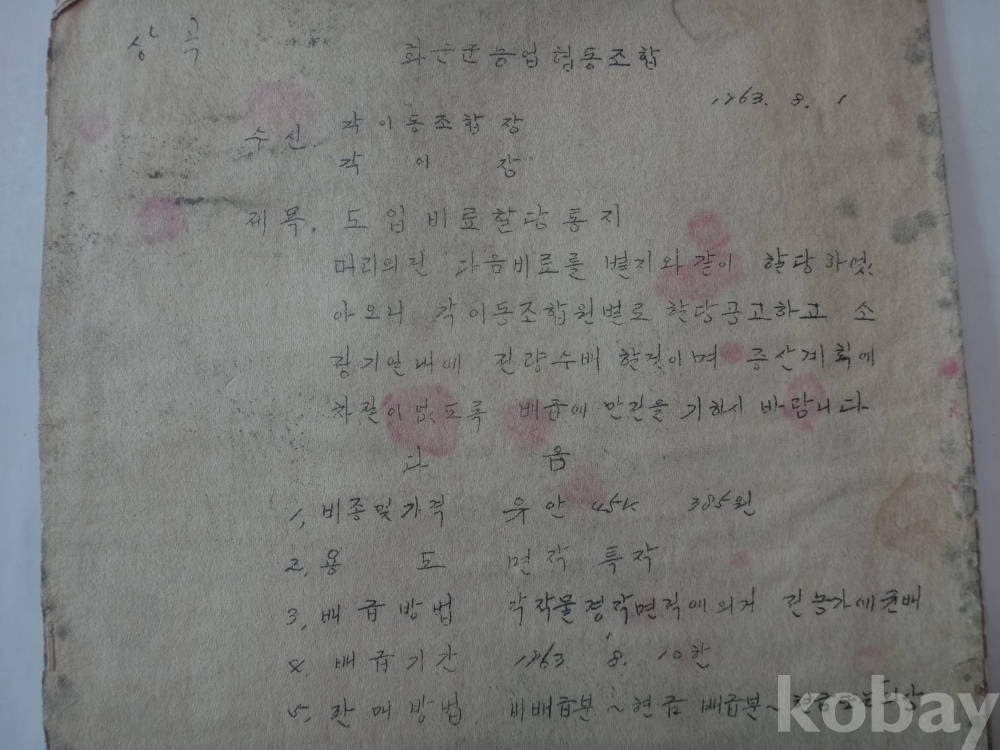 상곡
화순군농업협동조합
1963. 8. 1
수신. 각이동조합장
각 이 장
제목. 도입비료할당통지
머리의건 다음비료를 별지와같이 할당하였
아오니 각이동조합원별로 할당공고하고 소
량기일내에 전량수배 할것이며 증산계획에
차질이없도록 배급에 만전을 기하시 바랍니다
다 음
1, 비종및가격 유안 45K 385원
2, 용 도 면작 특작
3, 배급방법 각작물경작면적에의거 전농가에균배
4. 배급기간 1963 8. 10한
5, 판매방법 비배급분~현금 배급분~현금또는외상
kobay